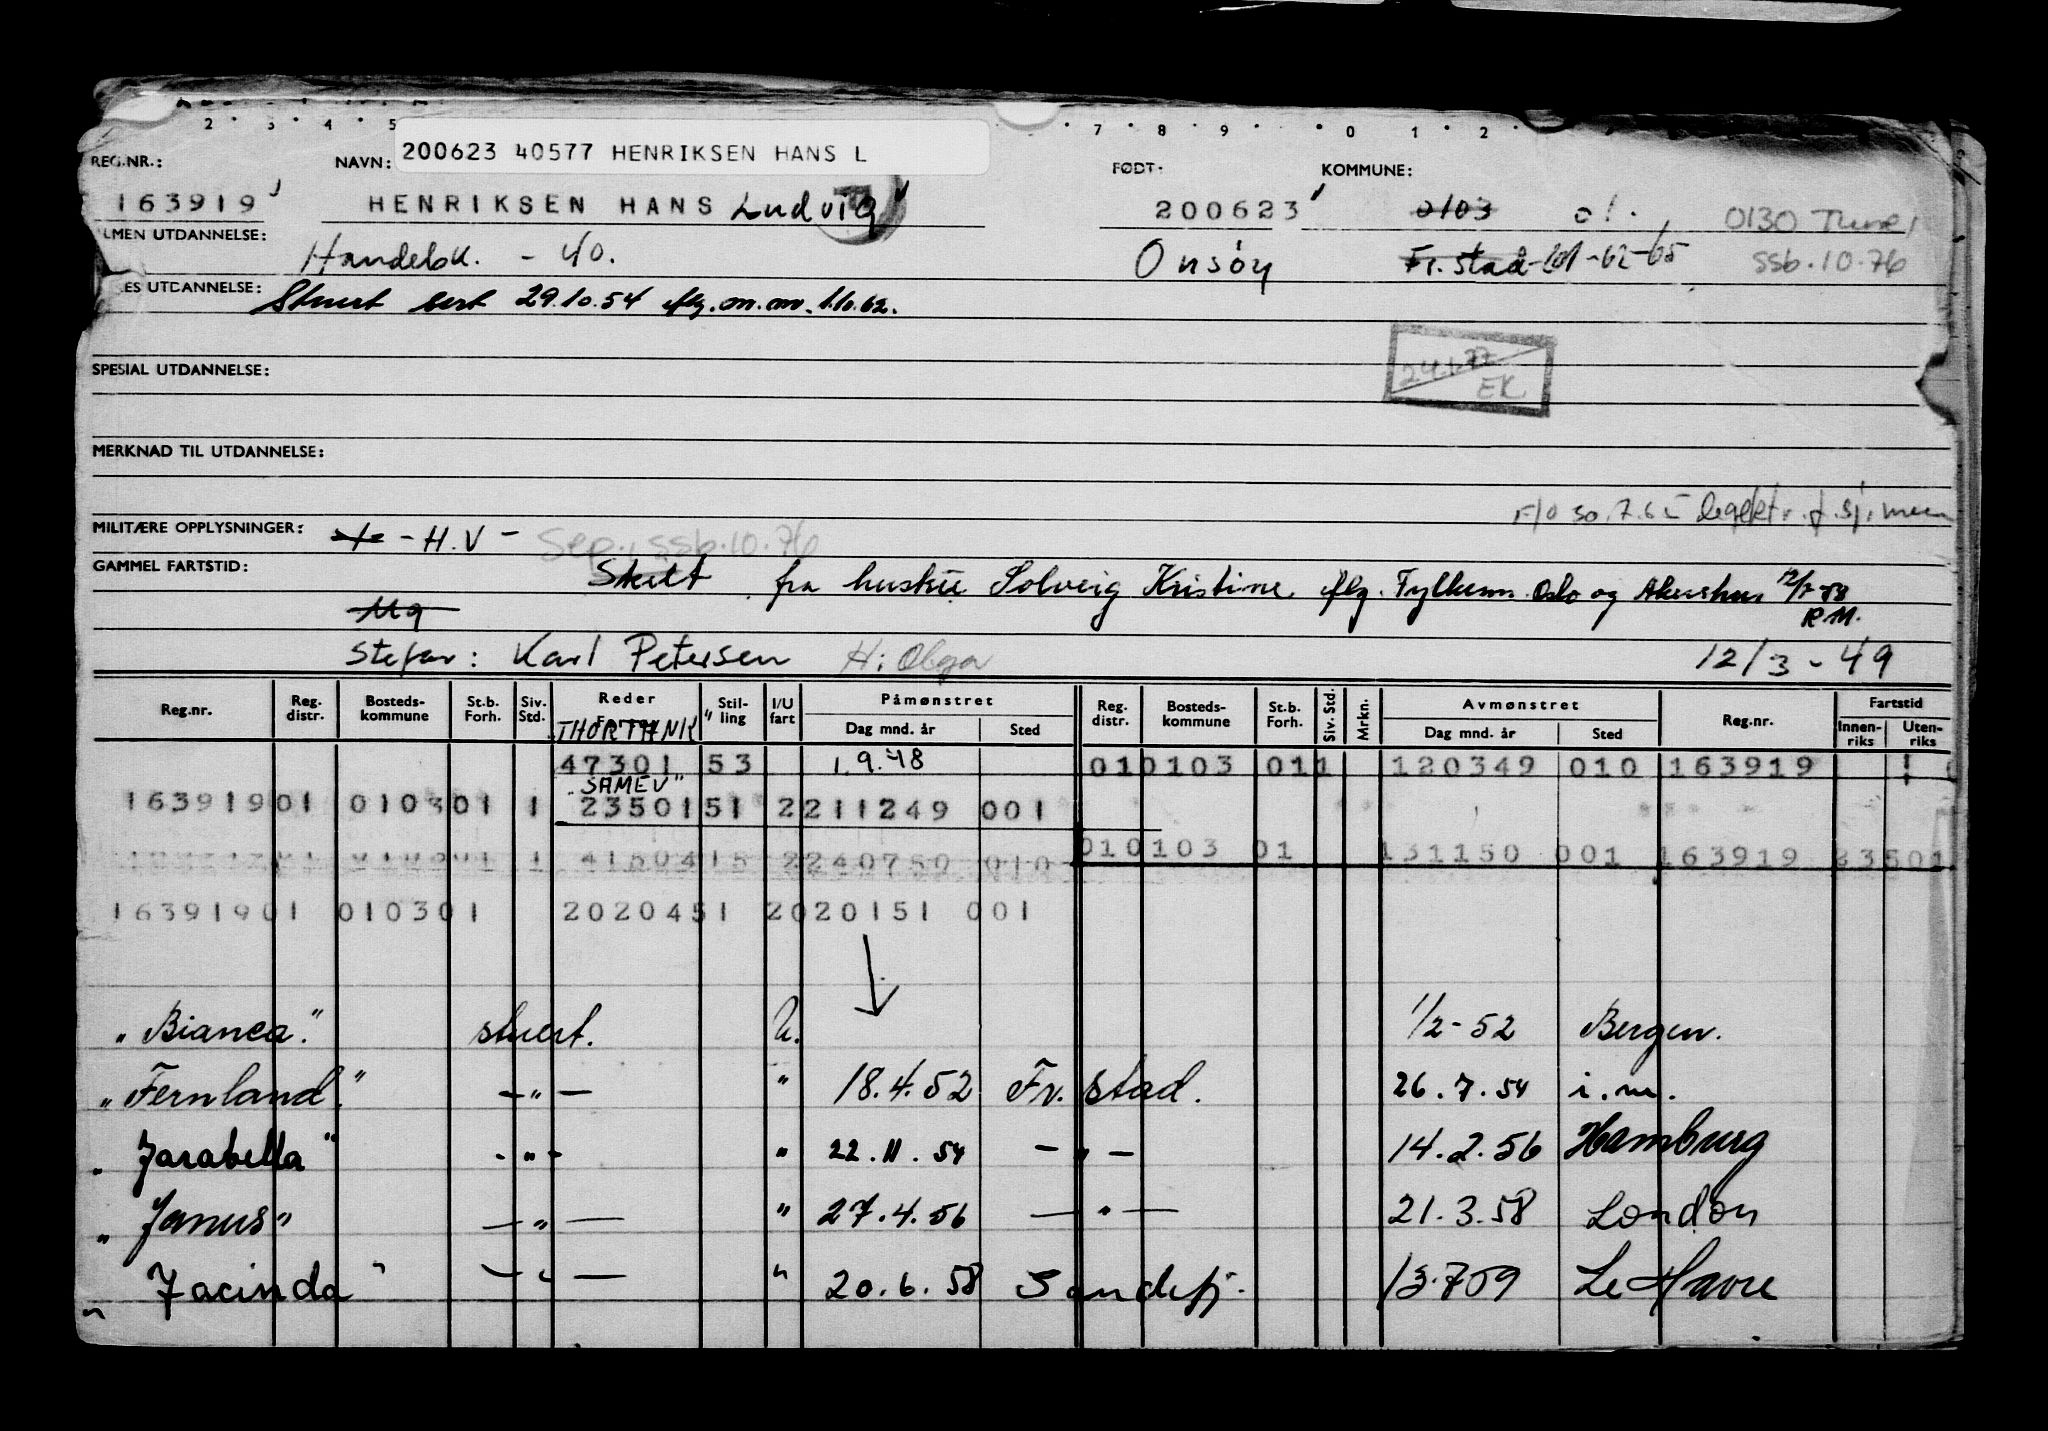 2 · 3 · 4 · 5 · 7 · 8 · 9 · · 0 1 · 2 ·
200623 40577 HENRIKSEN HANS L
REG.NR.: NAVN: FØDT: KOMMUNE:
163919 HENRIKSEN HANS Ludvig 200623 0103 01. 0130 Tune
LMEN UTDANNELSE: Handelsk. - 40. Onsøy Fr.stad -101-62-65 ssb.10.76
ES UTDANNELSE: Stuert sert 29.10.54 iflg. m.m. 1.10.62.
24.1.77 EK
SPESIAL UTDANNELSE:
MERKNAD TIL UTDANNELSE:
F/O 30.7.65 legekt. f. sj.menn
MILITÆRE OPPLYSNINGER: - H.V - Sep., ssb.10.76
GAMMEL FARTSTID: Skilt fra hustru Solveig Kristine iflg. Fylkesm. Oslo og Akershus 12/7-58
Ug R.M.
Stefar: Karl Petersen H: Olga 12/3-49
Reg.nr. Reg. distr. Bosteds-kommune St.b. Forh. Siv. Std. Reder Stil-ling I/U fart Påmønstret Dag mnd. år Sted Reg. distr. Bosteds-kommune St.b. Forh. Siv. Std. Mrkn. Avmønstret Dag mnd. år Sted Reg.nr. Fartstid Innen-riks Uten-riks
"THORTANK"
47301 53 1.9.48 010103 011 120349 010 163919
"SAMEV"
163919 01 0103 01 1 23501 51 2 211249 001
41504 15 2 240750 010 010103 01 131150 001 163919 23501
163919 01 0103 01 20204 51 2 020151 001
"Bianca". stuert. U. 1/2-52 Bergen.
"Fernland". -"- " 18.4.52 Fr. stad. 26.7.54 i.m.
"Jarabella" -"- " 22.11.54 -"- 14.2.56 Hamburg
"Janus" -"- " 27.4.56 -"- 21.3.58 London
"Jacinda" -"- " 20.6.58 Sandefj. 13.7.59 Le Havre